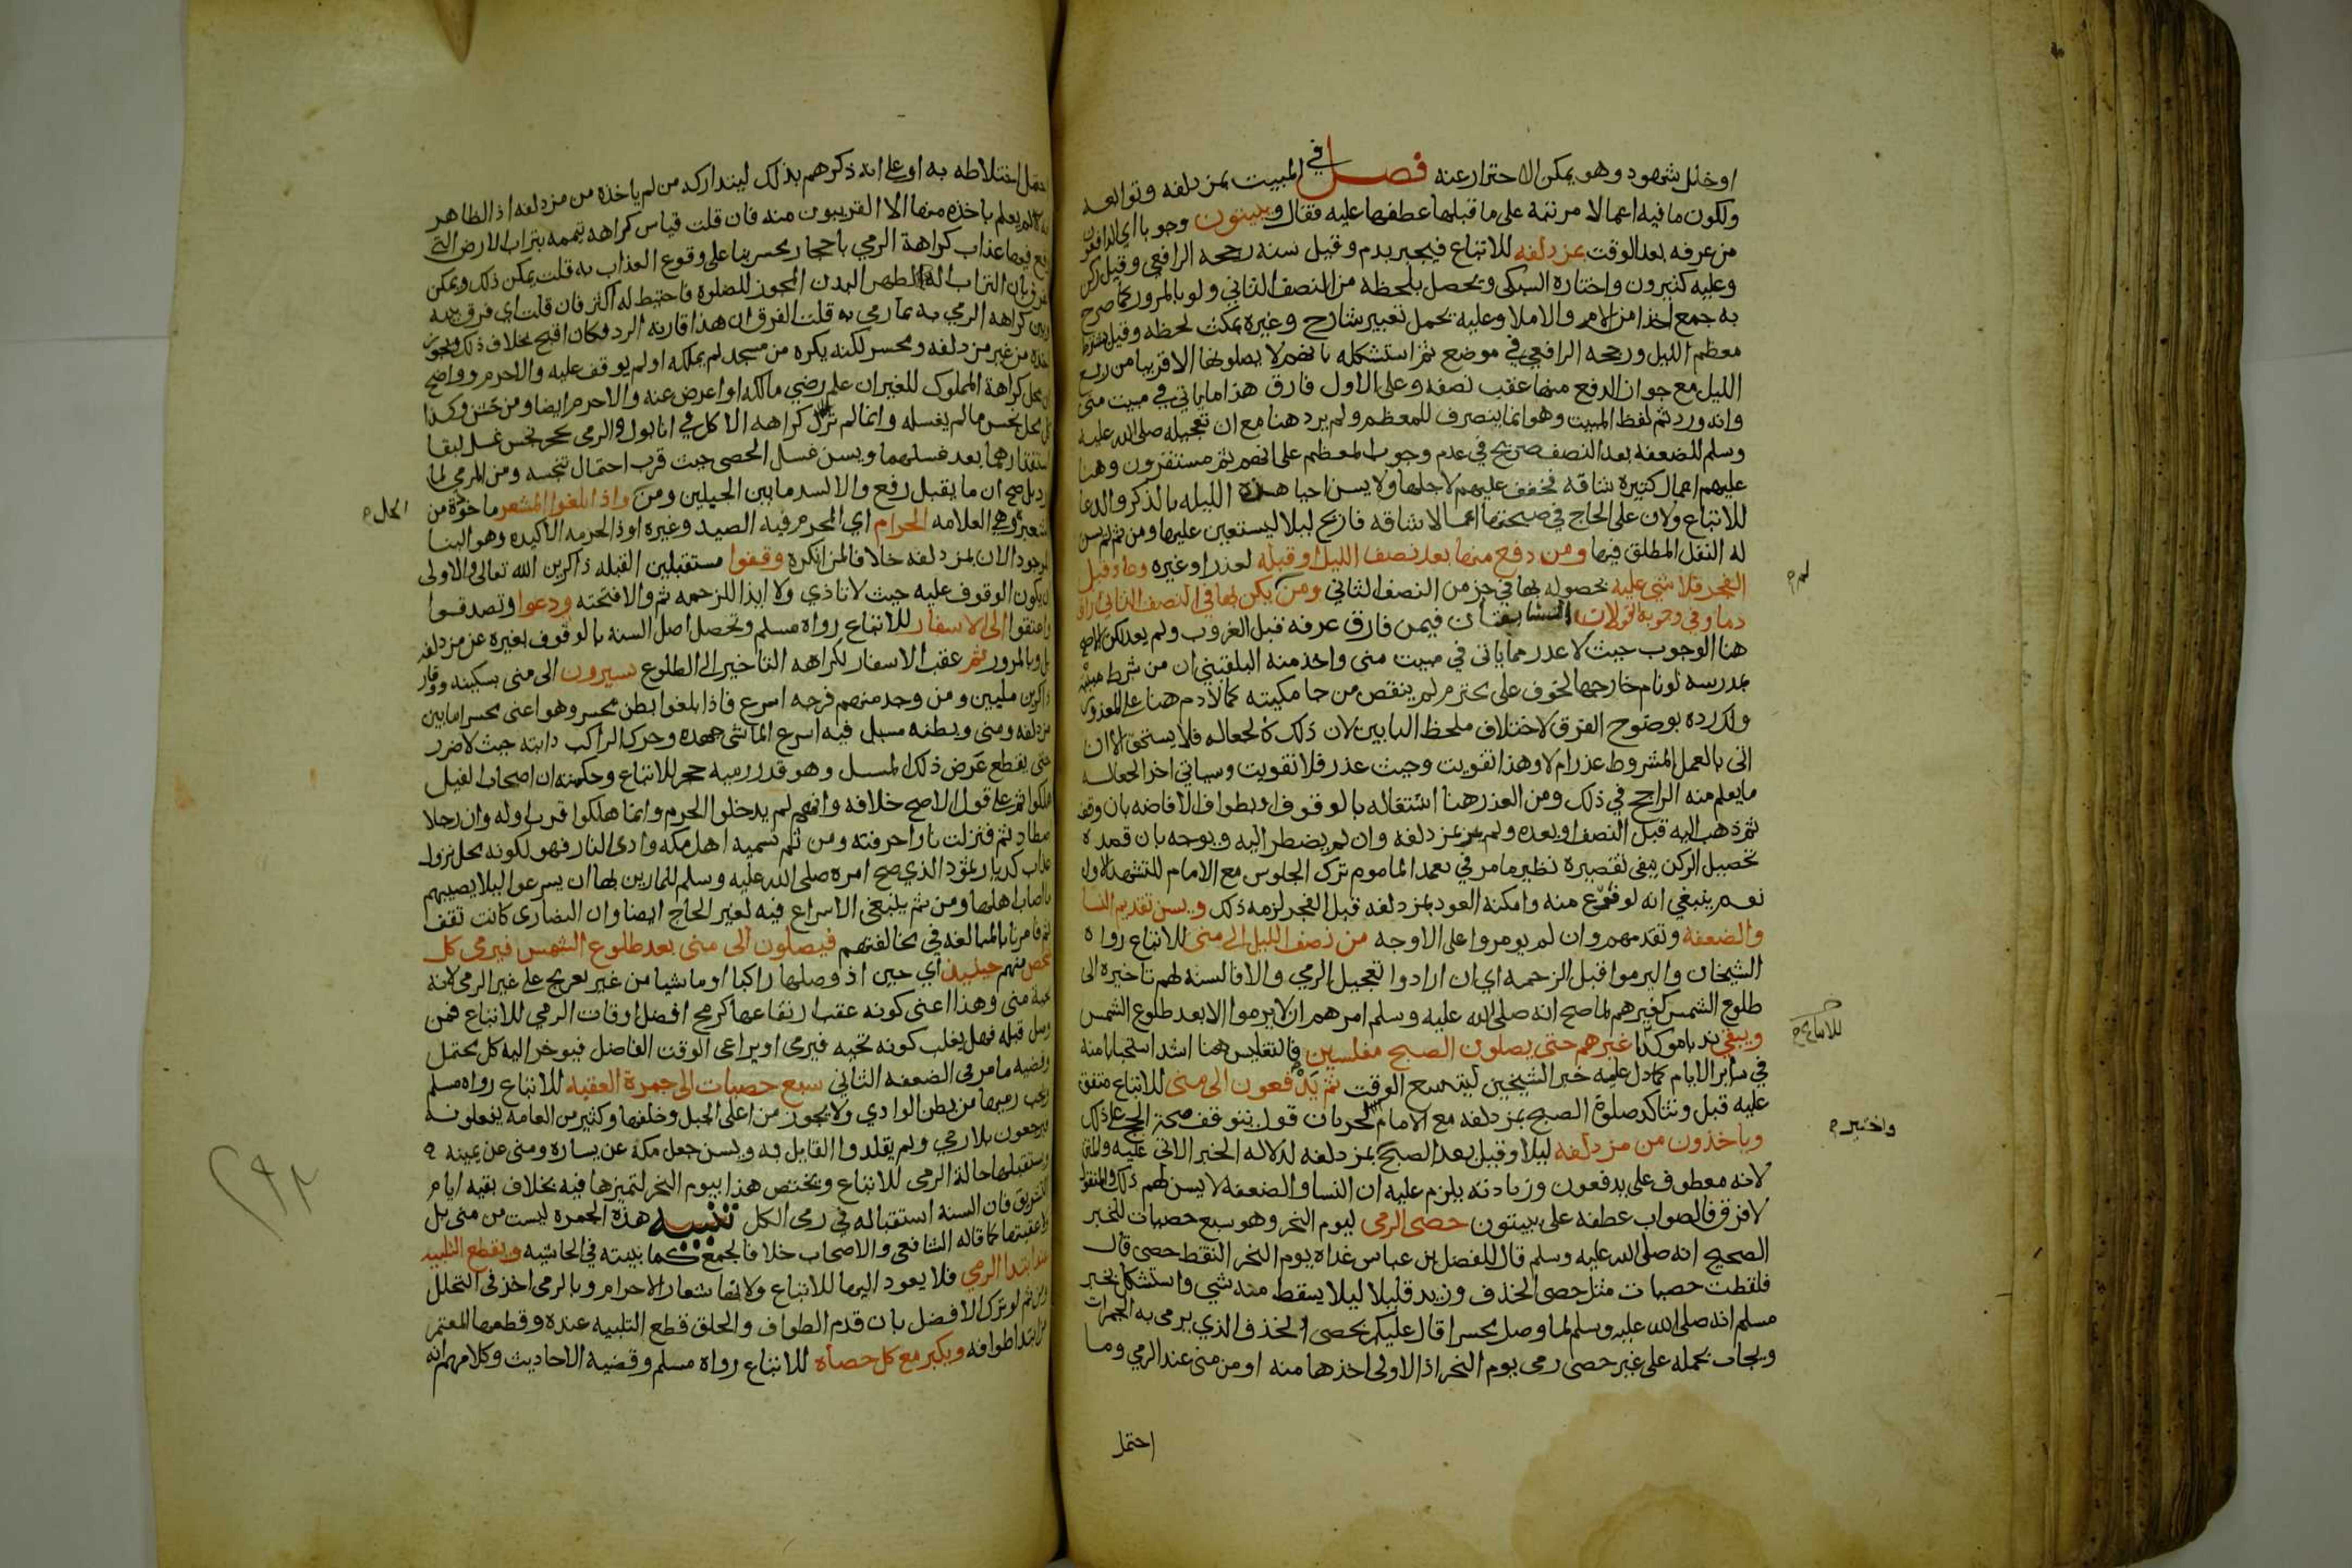 او خلل شهود وهو يمكن الاحتراز عنه فصل في المبيت بمزدلفه وتوابعه
ولكون ما فيه اعمالا مرتبة على ما قبلها عطفها عليه فقال ويبيتون وجوبا اي الدافعون
من عرفه بعد الوقت بمزدلفه للاتباع فيجبر بدم وقيل سنه رجحه الرافعي وقيل ركن
وعليه كثيرون واختاره السبكي ويحصل بلحظه من النصف الثاني ولو بالمرور كما صرح
به جمع اخذا من الام والاملا وعليه يحمل تعبير شارح وغيره بمكث لحظه وقيل يشترط
معظم الليل ورجحه الرافعي في موضع ثم استشكله بانهم لا يصلونها الا قريبا من ربع
الليل مع جواز الدفع منها عقب نصفه وعلى الاول فارق هذا ما ياتي في مبيت منى
وانه ورد ثم لفظ المبيت وهو انما ينصرف للمعظم ولم يرد هنا مع ان تعجيله صلى الله عليه
وسلم للضعفه بعد النصف صريح في عدم وجوب المعظم على انهم ثم مستقرون وهنا
عليهم اعمال كثيرة شاقه فخفف عليهم لاجلها ولا يسن احيا هذه الليله بالذكر والدعا
للاتباع ولان على الحاج في صبحتها اعمالا شاقه فاريح ليلا ليستعين عليها ومن ثم لم يسن
له النفل المطلق فيها ومن دفع منها بعد نصف الليل او قبله لعذر او غيره وعاد قبل
الفجر فلا شي عليه لحصوله بها في جز من النصف الثاني ومن يكن بها في النصف الثاني اراق
لم
دما وفي وجوبه القولان السابقان فيمن فارق عرفه قبل الغروب ولم يعد لكن الاصح
هنا الوجوب حيث لا عذر مما ياتي في مبيت منى واخذ منه البلقيني ان من شرط مبيته
بمدرسه لو نام خارجها لخوف على محترم لم ينقص من جامكيته كما لا دم هنا على المعذور
ولك رده بوضوح الفرق لاختلاف ملحظ البابين لان ذلك كالجعاله فلا يستحق الا ان
اتى بالعمل المشروط عذر ام لا وهذا تفويت وحيث عذر فلا تفويت وسياتي اخر الجعاله
ما يعلم منه الراجح في ذلك ومن العذر هنا اشتغاله بالوقوف او بطواف الافاضه بان وقف
ثم ذهب اليه قبل النصف او بعده ولم يمر بمزدلفة وان لم يضطر اليه ويوجه بان قصده
تحصيل الركن ينفي تقصيره نظير ما مر في تعمد الماموم ترك الجلوس مع الامام للتشهد الاول
نعم ينبغي انه لو فرغ منه وامكنه العود بمزدلفه قبل الفجر لزمه ذلك ويسن تقديم النسا
والضعفه وتقدمهم وان لم يومروا على الاوجه من نصف الليل الى منى للاتباع رواه
الشيخان واليرموا قبل الزحمه اي ان ارادوا تعجيل الرمي والا فالسنه لهم تاخيره الى
طلوع الشمس كغيرهم لما صح انه صلى الله عليه وسلم امرهم ان لا يرموا الا بعد طلوع الشمس
ويبقى ندبا موكدا غيرهم حتى يصلون الصبح مغلسين فالتغليس هنا اشد استحبابا منه
للاتباع
في ساير الايام كما دل عليه خبر الشيخين ليتسع الوقت ثم يدفعون الى منى للاتباع متفق
عليه قبل وتتاكد صلوة الصبح بمزدلفه مع الامام لجريان قول بتوقف صحة الحج على ذلك
وياخذون من مزدلفه ليلا وقيل بعد الصبح بمزدلفه لدلاله الخبر الاتي عليه والمتن
واختير
لانه معطوف على يدفعون وزيادته يلزم عليه ان النسا والضعفه لا يسن لهم ذلك والمنقول
لا فرق فالصواب عطفه على يبيتون حصى الرمى ليوم النحر وهو سبع حصيات للخبر
الصحيح انه صلى الله عليه وسلم قال للفضل بن عباس غداه يوم النحر التقط حصى قال
فلقطت حصيات مثل حصى الخذف وزيد قليلا ليلا يسقط منه شي واستشكل بخبر
مسلم انه صلى الله عليه وسلم لما وصل محسرا قال عليكم بحصى الخذف الذي يرمى به الجمرات
ويجاب بحمله على غير حصى رمى يوم النحر اذ الاولى اخذها منه او من منى عند الرمي وما
احتمل
احتمل اختلاطه به او على انه ذكرهم بذلك ليتداركه من لم ياخذه من مزدلفه اذ الظاهر
انه لم يعلم باخذه منها الا القريبون منه فان قلت قياس كراهه تيممه بتراب الارض التي
وقع فيها عذاب كراهة الرمي باحجار محسر بنا على وقوع العذاب به قلت يمكن ذلك ويمكن
الفرق بان التراب الة لطهر البدن المجوز للصلوة فاحتيط له اكثر فان قلت اي فرق بينه
وبين كراهه الرمي به بما رمي به قلت الفرق ان هذا قارنه الرد فكان اقبح بخلاف ذلك ويجوز
اخذه من غير مزدلفه ومحسر لكنه يكره من مسجد لم يملكه او لم يوقف عليه والا حرم وواضح
ان محل كراهة المملوك للغير ان علم رضي مالكه او اعرض عنه والا حرم ايضا ومن حش وكذا
كل محل نجس ما لم يغسله وانما لم تزل كراهه الاكل في انا بول والرمي بحجر نجس غسل لبقا
استقذارهما بعد غسلهما ويسن غسل الحصى حيث قرب احتمال تنجسه ومن المرمي لما
ورد بل صح ان ما يقبل رفع والا لسد ما بين الجبلين ومن واذا بلغوا المشعر ماخوذ من
الحل
الشعيره وهي العلامه الحرام اي المحرم فيه الصيد وغيره او ذا الحرمه الاكيده وهو البنا
الموجود الان بمزدلفه خلافا لمن انكره وقفوا مستقبلين القبله ذاكرين الله تعالى والاولى
ان يكون الوقوف عليه حيث لا تاذي ولا ايذا للزحمه ثم والا فتحته ودعوا وتصدقوا
واعتقوا الى الاسفار للاتباع رواه مسلم وتحصل اصل السنه بالوقوف بغيره من مزدلفه
بل وبالمرور ثم عقب الاسفار لكراهه التاخير الى الطلوع يسيرون الى منى بسكينه ووقار
ذاكرين ملبين ومن وجد منهم فرجه اسرع فاذا بلغوا بطن محسر وهو اعنى محسر ما بين
مزدلفه ومنى وبطنه مسيل فيه اسرع الماشي جهده وحرك الراكب دابته حيث لا ضرر
حتى يقطع عرض ذلك المسيل وهو قدر رميه حجر للاتباع وحكمته ان اصحاب الفيل
هلكوا ثم على قول الاصح خلافه وانهم لم يدخلوا الحرم وانما هلكوا قرب اوله وان رجلا
اصطاد ثم فنزلت نار احرقته ومن ثم تسميه اهل مكه وادي النار فهو لكونه محل نزول
عذاب كديار ثمود الذي صح امره صلى الله عليه وسلم للمارين بها ان يسرعوا ليلا يصيبهم
ما اصاب اهلها ومن ثم ينبغي الاسراع فيه لغير الحاج ايضا وان النصارى كانت تقف
ثم فامرنا بالمبالغه في مخالفتهم فيصلون الى منى بعد طلوع الشمس فيرمى كل
شخص منهم حينيذ اي حين اذ وصلها راكبا او ماشيا من غير تعريج على غير الرمي لانه
تحية منى وهذا اعني كونه عقب ارتفاعها كرمح افضل اوقات الرمي للاتباع فمن
وصل قبله فهل يغلب كونه تحيه فيرمى او يراعى الوقت الفاضل فيوخر اليه كل محتمل
وقضيه ما مر في الضعفه الثاني سبع حصيات الى جمرة العقبه للاتباع رواه مسلم
ويجب رميها من بطن الوادي ولا يجوز من اعلى الجبل وخلفها وكثير من العامه يفعلونه
فيرجعون بلا رمي ولم يقلدوا القايل به ويسن جعل مكه عن يساره ومنى عن يمينه
واستقبلها حالة الرمى للاتباع ويختص هذا بيوم النحر لتميزها فيه بخلاف بقيه ايام
التشريق فان السنه استقباله في رمى الكل تنبيه هذه الجمره ليست من منى بل
ولا عقبتها كما قاله الشافعي والاصحاب خلافا لجمع كما بينته في الحاشيه ويقطع التلبيه
عند ابتدا الرمي فلا يعود اليها للاتباع ولانها شعار الاحرام وبالرمى اخذ في التحلل
ومن ثم لو ترك الافضل بان قدم الطواف والحلق قطع التلبيه عنده وقطعها المعتمر
عند ابتدا طوافه ويكبر مع كل حصاه للاتباع رواه مسلم وقضيه الاحاديث وكلامهم انه
٢٩٢